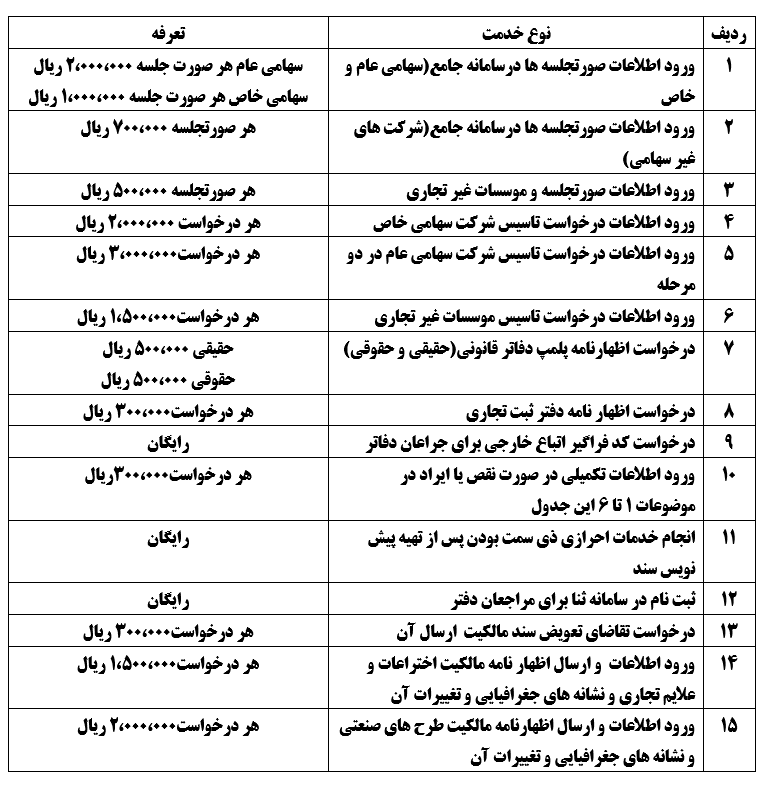 ردیف نوع خدمت تعرفه
۱ ورود اطلاعات صورتجلسه ها درسامانه جامع(سهامی عام و سهامی عام هر صورت جلسه ۲،۰۰۰،۰۰۰ ریال
خاص سهامی خاص هر صورت جلسه ۱،۰۰۰،۰۰۰ ریال
۲ ورود اطلاعات صورتجلسه ها درسامانه جامع(شرکت های هر صورتجلسه ۷۰۰،۰۰۰ ریال
غیر سهامی)
۳ ورود اطلاعات صورتجلسه و موسسات غیر تجاری هر صورتجلسه ۵۰۰،۰۰۰ ریال
۴ ورود اطلاعات درخواست تاسیس شرکت سهامی خاص هر درخواست ۲،۰۰۰،۰۰۰ ریال
۵ ورود اطلاعات درخواست تاسیس شرکت سهامی عام در دو هر درخواست۳،۰۰۰،۰۰۰ ریال
مرحله
۶ ورود اطلاعات درخواست تاسیس موسسات غیر تجاری هر درخواست۱،۵۰۰،۰۰۰ ریال
۷ درخواست اظهارنامه پلمپ دفاتر قانونی(حقیقی و حقوقی) حقیقی ۵۰۰،۰۰۰ ریال
حقوقی ۵۰۰،۰۰۰ ریال
۸ درخواست اظهار نامه دفتر ثبت تجاری هر درخواست۳۰۰،۰۰۰ ریال
۹ درخواست کد فراگیر اتباع خارجی برای جراعان دفاتر رایگان
۱۰ ورود اطلاعات تکمیلی در صورت نقص یا ایراد در هر درخواست۳۰۰،۰۰۰ریال
موضوعات ۱ تا ۶ این جدول
۱۱ انجام خدمات احرازی ذی سمت بودن پس از تهیه پیش رایگان
نویس سند
۱۲ ثبت نام در سامانه ثنا برای مراجعان دفتر رایگان
۱۳ درخواست تقاضای تعویض سند مالکیت ارسال آن هر درخواست۳۰۰،۰۰۰ ریال
۱۴ ورود اطلاعات و ارسال اظهار نامه مالکیت اختراعات و هر درخواست۱،۵۰۰،۰۰۰ ریال
علایم تجاری و نشانه های جغرافیایی و تغییرات آن
۱۵ ورود اطلاعات و ارسال اظهارنامه مالکیت طرح های صنعتی هر درخواست۲،۰۰۰،۰۰۰ ریال
و نشانه های جغرافیایی و تغییرات آن